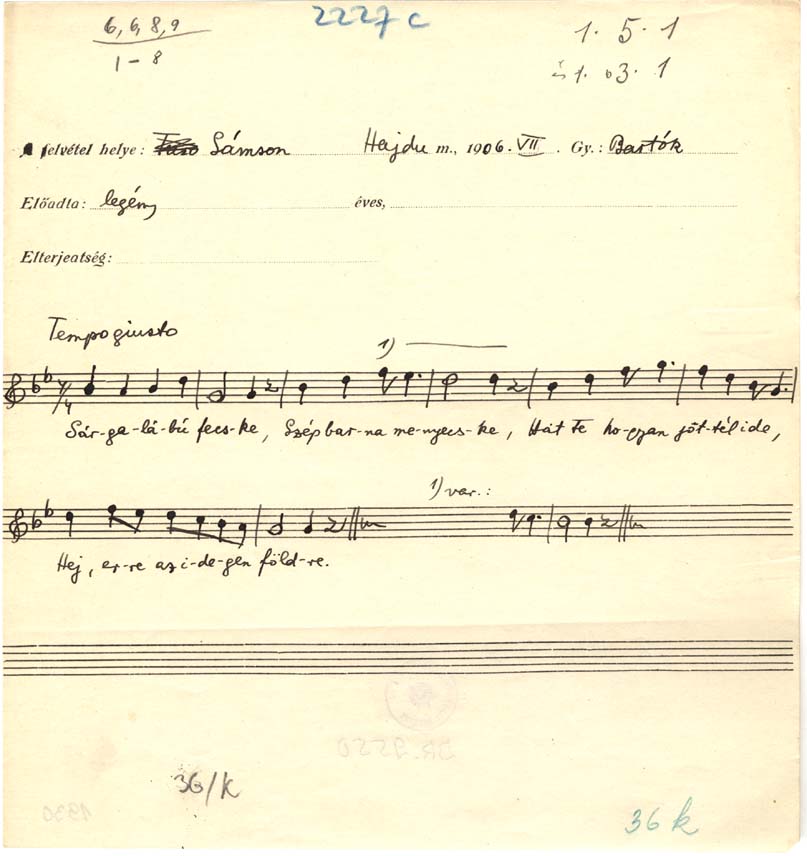 6, 6, 8, 9
1-8
2227 c
1. 5. 1
és 1. b3. 1
A felvétel helye: Sámson Hajdu m., 1906. VII. Gy.: Bartók
Előadta: legény éves,
Elterjeatség:
Tempo giusto
1)
4/4
Sár-ga-lá-bú fecs-ke, Szép bar-na me-nyecs-ke, Hát Te ho-gyan jöt-tél ide,
1) var.:
Hej, er-re az i-de-gen föld-re.
36/k
36 k